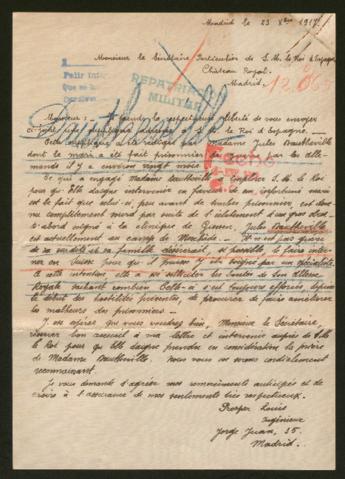 Madrid le 23 Xbre 1917.
Monsieur le Secrétaire Particulier de S. M. le Roi d'Espagne
Château Royal.
Madrid.
REPATRIA
MILITAR
12.06
Monsieur: Je prends la respectueuse liberté de vous envoyer
S. M. le Roi d'Espagne.
Cette supplique a été rédigée par Madame Jules
dont le mari a été fait prisonnier de guerre par les Alle-
mands il y a environ vingt mois
Ce qui a engagé Madame à implorer S. M. le Roi
pour qu'Elle daigne intervenir en faveur de son infortuné mari
est le fait que celui-ci, peu avant de tomber prisonnier, est deve-
nu complètement sourd par suite de l'éclatement d'un gros obus.
D'abord soigné à la clinique de Giessen, Jules
est actuellement au camp de Il n'est pas guéri
de sa surdité et sa famille désirerait si possible, le faire inter-
ner en Suisse pour qu'il puisse y être soigné par un spécialiste.
A cette intention, elle a sollicité les bontés de Son Altesse
Royale sachant combien Celle-ci s'est toujours efforcée, depuis
le début des hostilités présentes, de procurer de faire améliorer
les malheurs des prisonniers.
J'ose espérer que vous voudrez bien, Monsieur le Secrétaire,
réserver bon accueil à ma lettre et intervenir auprès de S. M.
le Roi pour qu'Elle daigne prendre en considération la prière
de Madame Nous vous en serons cordialement
reconnaissant.
Je vous demande d'agréer mes remerciements anticipés et de
croire à l'assurance de mes sentiments très respectueux.
Prosper Louis
Ingénieur
Jorge Juan, 35.
Madrid.